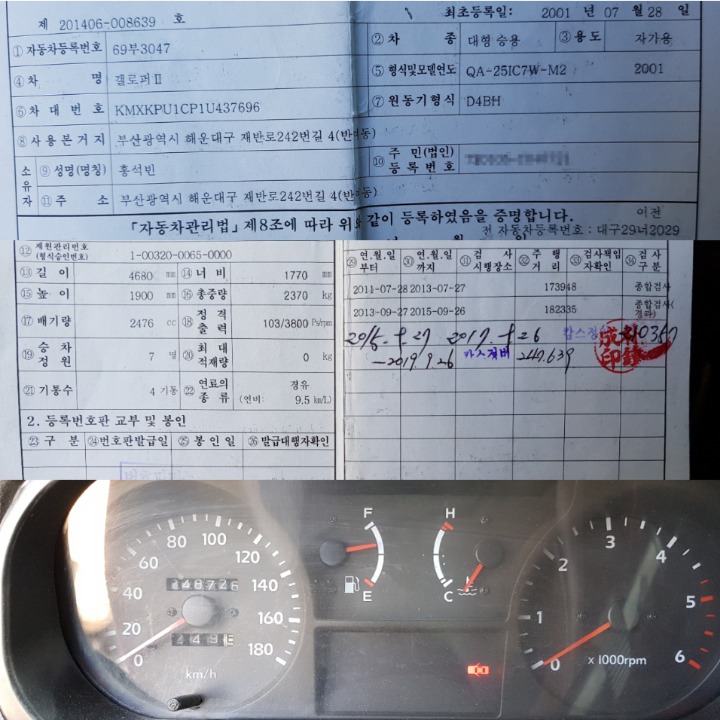 제 201406-008639 호
최초등록일: 2001 년 07 월 28 일
① 자동차등록번호 69부3047 ② 차 종 대형 승용 ③ 용도 자가용
④ 차 명 갤로퍼Ⅱ ⑤ 형식및모델연도 QA-25IC7W-M2 2001
⑥ 차 대 번 호 KMXKPU1CP1U437696 ⑦ 원동기형식 D4BH
⑧ 사용본거지 부산광역시 해운대구 재반로242번길 4(반여동)
소유자 ⑨ 성명(명칭) 홍석빈 ⑩ 주민(법인)등록번호
⑪ 주 소 부산광역시 해운대구 재반로242번길 4(반여동)
「자동차관리법」제8조에 따라 위와 같이 등록하였음을 증명합니다.
이전
전 자동차등록번호 : 대구29너2029
⑫ 제원관리번호 (형식승인번호) 1-00320-0065-0000
⑬ 길 이 4680 mm ⑭ 너 비 1770 mm
⑮ 높 이 1900 mm ⑯ 총중량 2370 kg
⑰ 배기량 2476 cc ⑱ 정격출력 103/3800 Ps/rpm
⑲ 승차정원 7 명 ⑳ 최대적재량 0 kg
㉑ 기통수 4 기통 ㉒ 연료의 종류 경유 (연비: 9.5 km/L)
2. 등록번호판 교부 및 봉인
㉓ 구 분 ㉔ 번호판발급일 ㉕ 봉 인 일 ㉖ 발급대행자확인
㉙ 연.월.일 부터 ㉚ 연.월.일 까지 ㉛ 검 사 시행장소 ㉜ 주 행 거 리 ㉝ 검사책임자확인 ㉞ 검 사 구 분
2011-07-28 2013-07-27 173948 종합검사
2013-09-27 2015-09-26 182335 종합검사(경과)
2017. 9 26
-2019.9.26 카스정비 247.639
80 100
60 120
40 140
20 160
0 180
km/h
24872
F
E
H
C
0 1 2 3 4 5 6
x 1000rpm